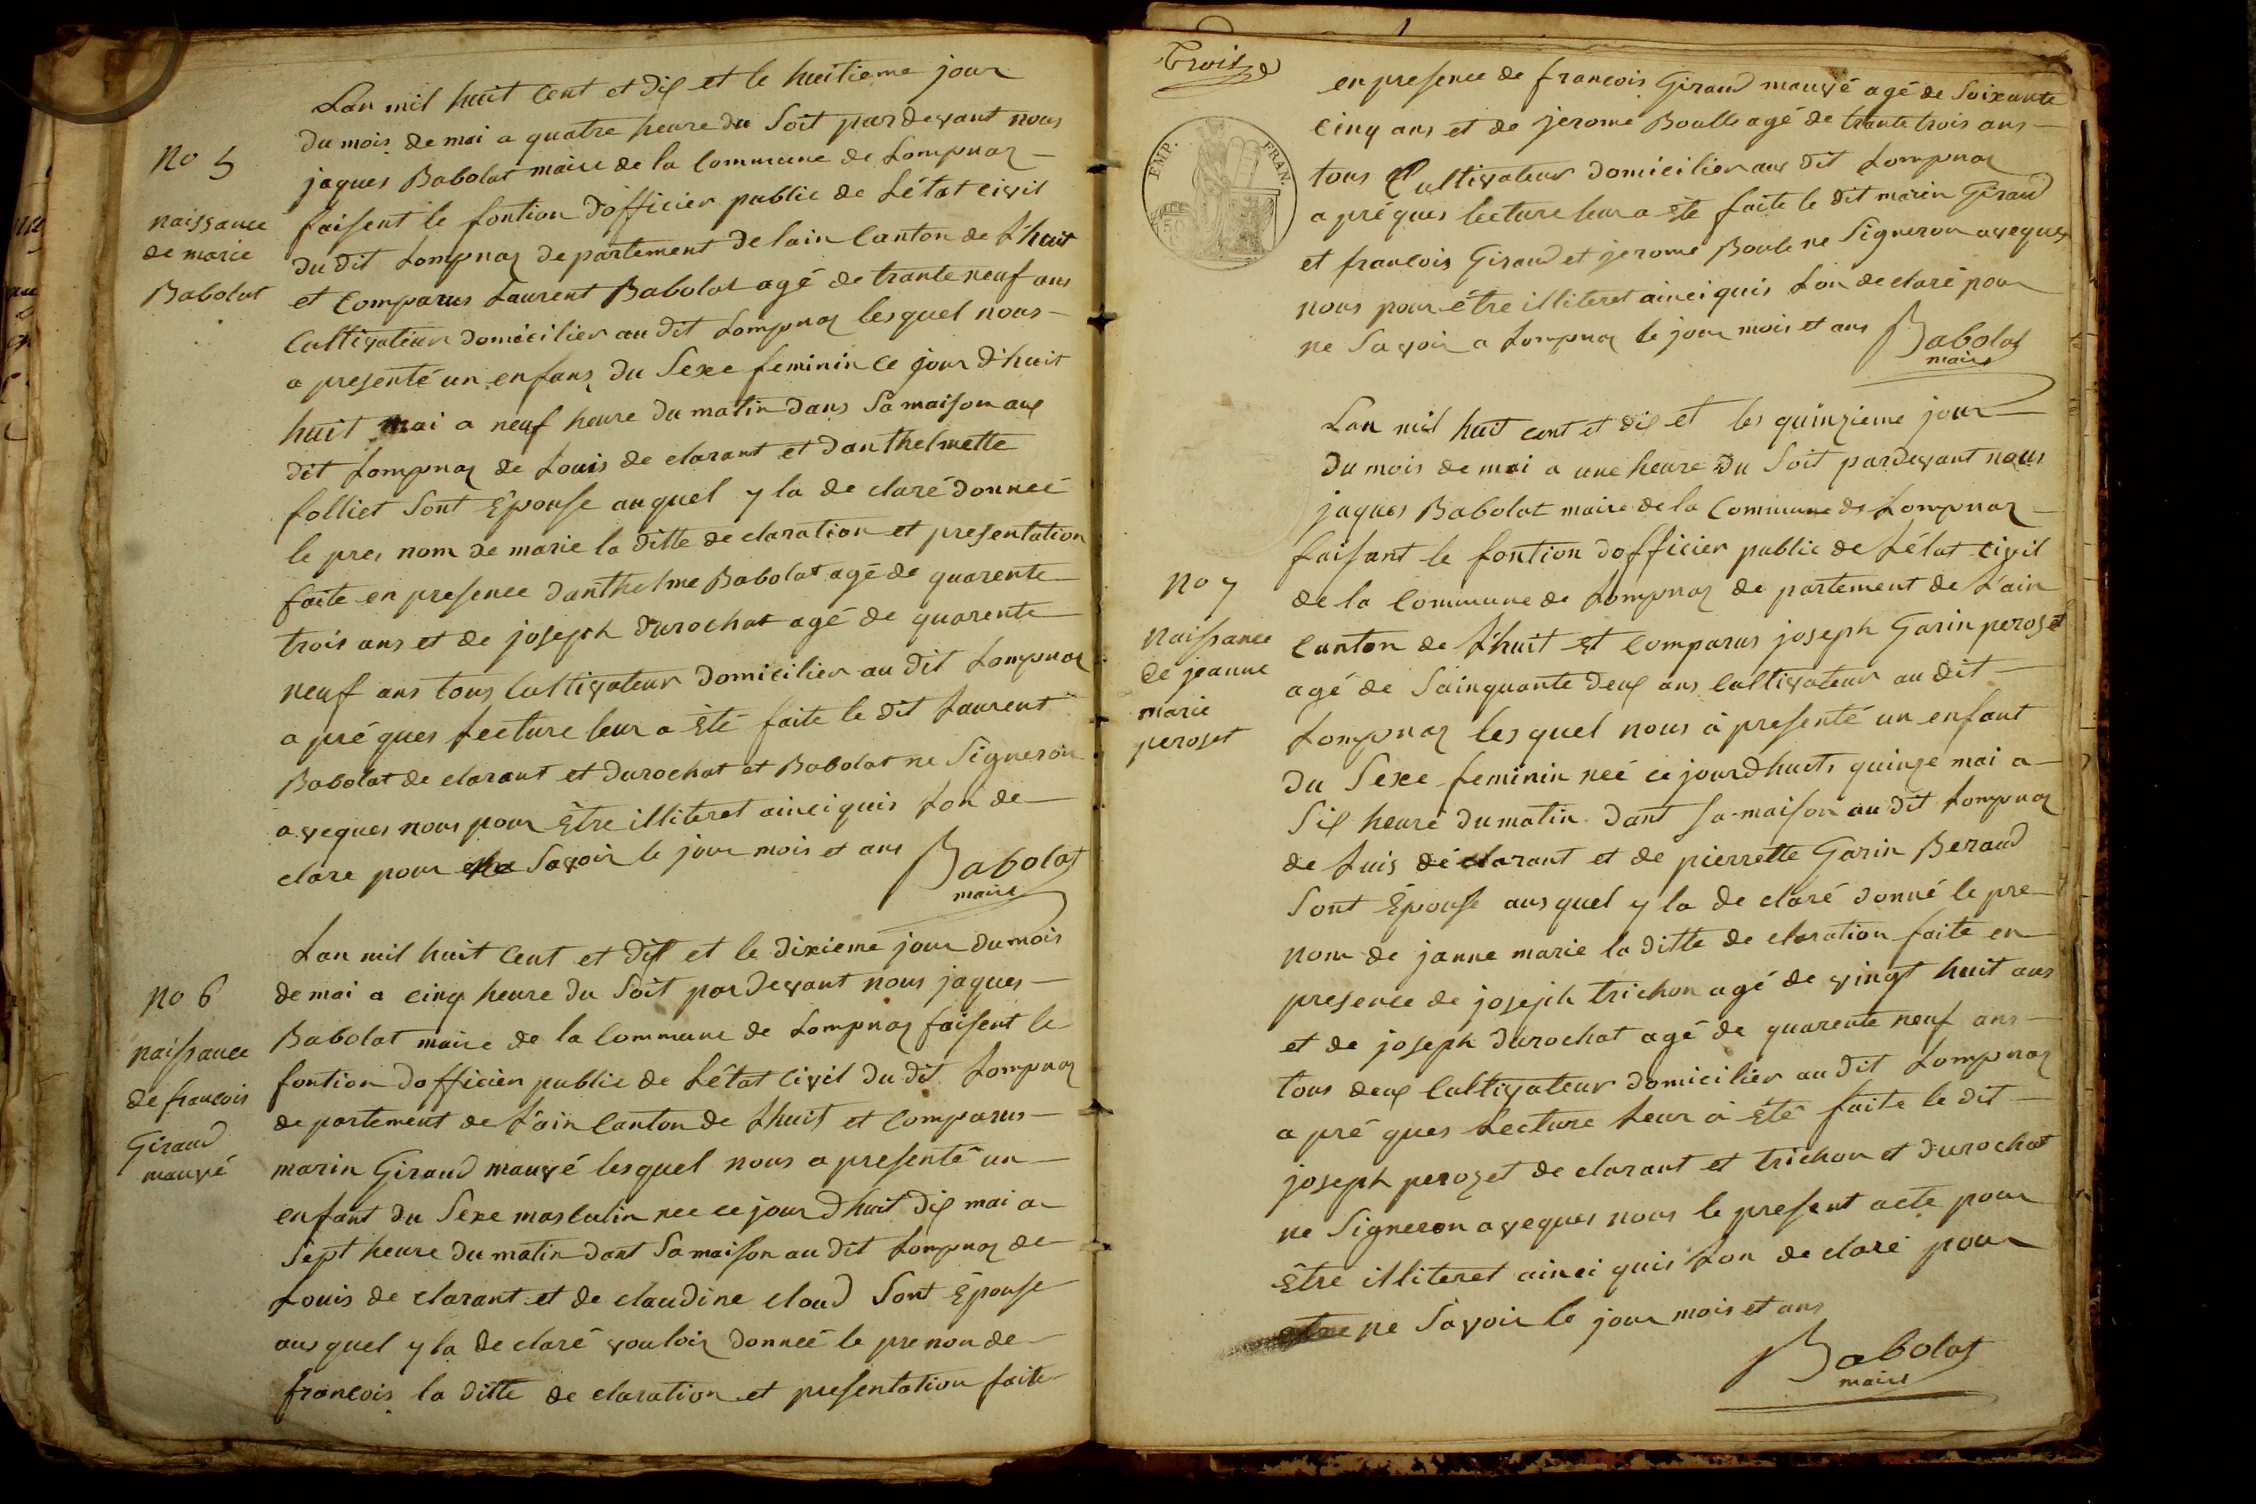 No 5
naissance
de marie
Babolat
Lan mil huit Cent et dix et le huitieme jour
du mois de mai a quatre heure du Soit pardevant nous
jaques Babolat maire de la Commune de Lompnaz
faisent le fontion dofficier public de Létat civil
du dit Lompnaz departement de lain Canton de Lhuit
et Comparus Laurent Babolat agé de trante neuf ans
Cultivateur domicilier au dit Lompnaz lesquel nous
a presenté un enfans du Sexe feminin ce jour d'huit
huit mai a neuf heure du matin dans Sa maison aux
dit Lompnaz de Louis de clarant et danthelmette
folliet Sont Épouse auquel y la de claré donneé
le pres nom de marie la ditte de claration et presentation
faite en presence danthelme Babolat agé de quarente
trois ans et de joseph durochat agé de quarente
neuf ans tous Cultivateur domicilier au dit Lompnaz
a pré ques lecture leur a Été faite le dit Laurent
Babolat de clarant et durochat et Babolat ne Signeron
aveques nous pour Être illiteret ainci quis Lon de
clare pour ne Savoir le jour mois et ans
Babolat
maire
No 6
naissance
de francois
Giraud
mauvé
Lan mil huit Cent et dix et le dixieme jour du mois
de mai a cinq heure du Soit pardevant nous jaques
Babolat maire de la Commune de Lompnaz faisent le
fontion dofficier public de Létat Civil du dit Lompnaz
de partement de Lain Canton de Lhuit et Comparus
marin Giraud mauvé lesquel nous a presenté un
enfant du Sexe masculin nee ce jour dhuit dix mai a
Sept heure du matin dant Sa maison au dit Lompnaz de
Louis de clarant et de claudine cloud Sont Épouse
aus quel y la de claré vouloir donneé le prenon de
francois la ditte de claration et presentation faite
Trois
EMP. FRAN.
en presence de francois Giraud mauvé agé de Soixante
Cinq ans et de jerome Boulle agé de trante trois ans
tous Cultivateur domicilier aux dit Lompnaz
a pré ques lecture leur a Été faite le dit marin Giraud
et francois Giraud et jerome Boule ne Signeron aveques
nous pour être illiteret ainci quis Lon de claré pour
ne Savoir a Lompnaz le jour mois et ans
Babolat
maire
No 7
naissance
de jeanne
marie
peroset
Lan mil huit cent et dix et les quinzieme jour
du mois de mai a une heure du Soit pardevant nous
jaques Babolat maire de la Commune de Lompnaz
faisant le fontion dofficier public de Létat civil
de la Commune de Lompnaz de partement de Lain
Canton de Lhuit et Comparus joseph Garin peroset
agé de Sainquante deux ans Cultivateur au dit
Lompnaz lesquel nous à presenté un enfant
du Sexe feminin neé ce jourdhuits quinze mai a
Six heure du matin dant Sa maison au dit Lompnaz
de Luis déclarant et de pierrette Garin Beraud
Sont Épouse aus quel y la de claré donné le pre
nom de janne marie la ditte de claration faite en
presence de joseph trichon agé de vingt huit ans
et de joseph durochat agé de quarente neuf ans
tous deux Cultivateur domicilier au dit Lompnaz
a pré ques Lecture Leur à Été faite le dit
joseph perozet de clarant et trichon et durochat
ne Signeron aveques nous le present acte pour
Être illiteret ainci quis Lon de claré pour
ne Savoir le jour mois et ans
Babolat
maire